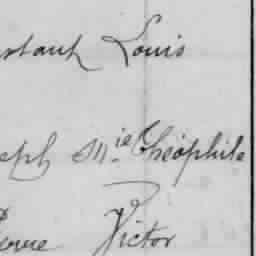 stant Louis
seph M.ie Théophile
Pierre Victor